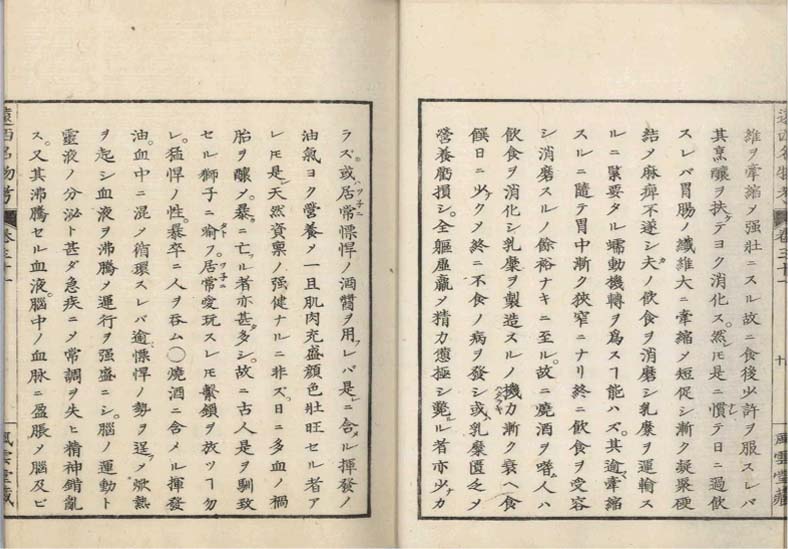 遠西名物考 巻三十一 十 風雲堂藏
維ヲ牽縮メ强壯ニスル故ニ食後少許ヲ服スレバ
其烹釀ヲ扶テヨク消化ス。然レ𪜈是ニ慣レテ日ニ過飲
スレバ胃腸ノ纖維大ニ牽縮メ短促シ漸ク凝聚硬
結メ麻痺不遂シ夫カノ飲食ヲ消磨シ乳糜ヲ運輸ス
ルニ緊要タル蠕動機轉ヲ爲スヿ能ハズ。其逾牽縮
スルニ隨テ胃中漸ク狹窄ニナリ終ニ飲食ヲ受容
シ消磨スルノ餘裕ナキニ至ル。故ニ燒酒ヲ嗜ム人ハ
飲食ヲ消化シ乳糜ヲ製造スルノ機ハタラキ力漸ク衰ヘ食
饌日ニ少クメ終ニ不食ノ病ヲ發シ或ハ乳糜匱乏メ
營養虧損シ。全軀虛羸メ精力憊極シ斃ル者亦少カ
ラズ。或ハ居常ツ子ニ慓悍ノ酒醬ヲ用フレバ是ニ含メル揮發ノ
油氣ヨク營養メ一且肌肉充盛顔色壯旺セル者ア
レ𪜈是レ天然資禀ノ强健ナルニ非ズ。日ニ多血ノ禍
胎ヲ釀メ。暴ニ亡フル者亦甚タ多シ。故ニ古人是ヲ馴致
セル獅子ニ喩タトフ。居常ツ子ニ愛玩スレ𪜈繫鎖ヲ放ツヿ勿
レ。猛悍ノ性。暴卒ニ人ヲ呑ム〇燒酒ニ含メル揮發
油。血中ニ混メ循環スレバ逾慓悍ノ勢ヲ逞フメ焮熱
ヲ起シ血液ヲ沸騰メ運行ヲ强盛ニシ。腦ノ運動ト
靈液ノ分泌ト甚ダ急疾ニメ常調ヲ失ヒ精神錯亂
ス。又其沸騰セル血液。腦中ノ血脉ニ盈脹メ腦及ビ
遠西名物考 巻三十一 風雲堂藏